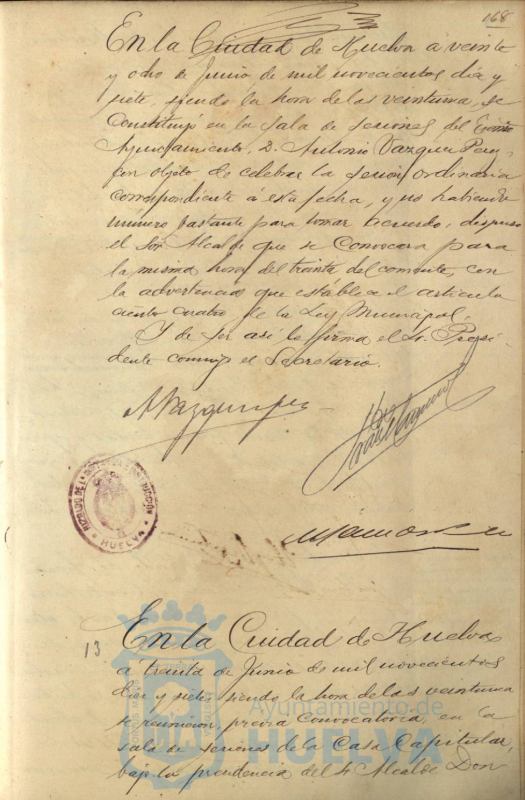 168
En la Ciudad de Huelva á veinte
y ocho de Junio de mil novecientos diez y
siete, siendo la hora de las veintiuna, se
constituyó en la sala de sesiones del Excmo
Ayuntamiento, D. Antonio Vazquez Perez,
con objeto de celebrar la sesion ordinaria
correspondiente á esta fecha, y no habiendo
numero bastante para tomar acuerdo, dispuso
el Sor Alcalde que se convocara para
la misma hora del treinta del corriente, con
la advertencia que establece el articulo
ciento cuatro de la Ley Municipal.
Y de ser así lo firma el Sr. Presi-
dente conmigo el Secretario.
A Vazquez Perez
HUELVA
13
En la Ciudad de Huelva
a treinta de Junio de mil novecientos
diez y siete, siendo la hora de las veintiuna
se reunieron, previa convocatoria, en la
sala de sesiones de la Casa Capitular,
bajo la presidencia del Sr Alcalde Don
Ayuntamiento de
HUELVA